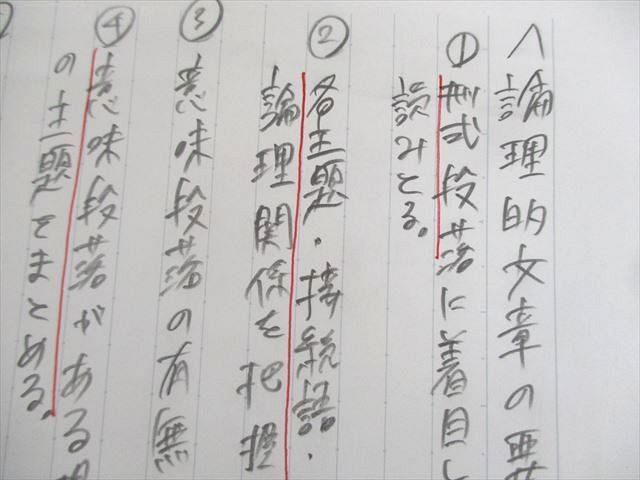 〈論理的文章の要
①形式段落に着目し
読みとる。
②各主題・接続語・
論理関係を把握
③意味段落の有無
④意味段落がある
の主題をまとめる。